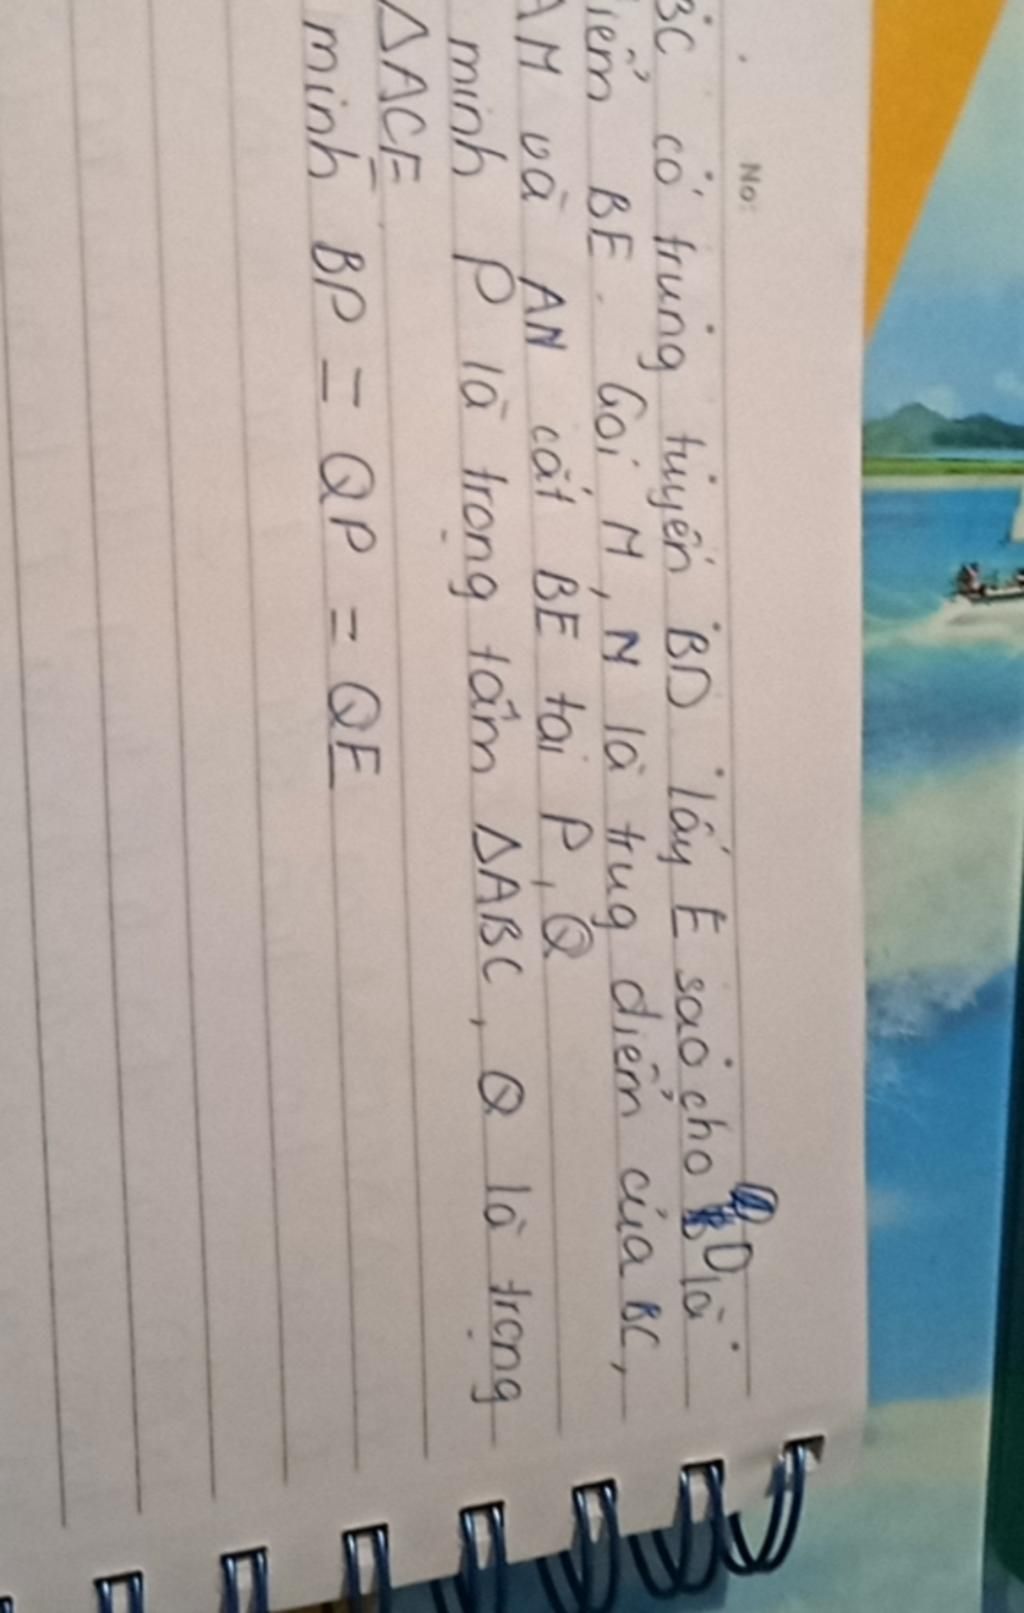 No:
BC có trung tuyến BD lấy E sao cho D là
iểm BE. Gọi M, N là trug điểm của BC,
AM và AN cắt BE tại P, Q
minh P là trọng tâm ΔABC, Q là trọng
ΔACE
minh BP = QP = QE